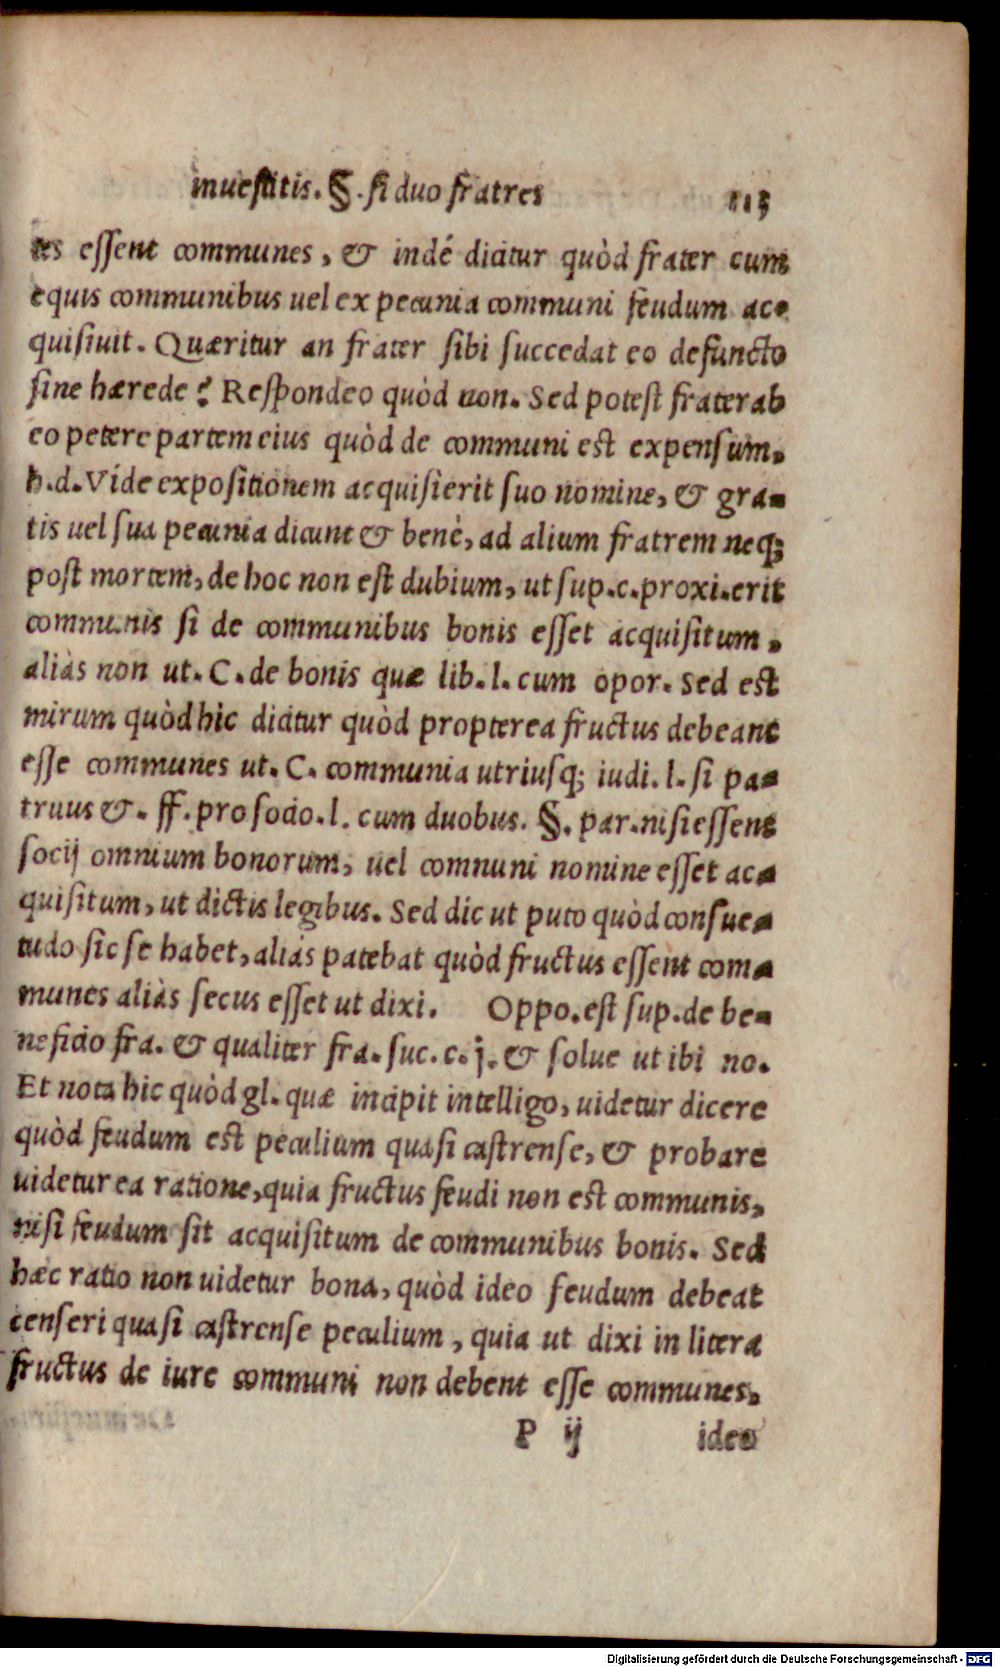 inuestitis. §. si duo fratres 113
tes essent communes, & indé dicitur quòd frater cum
equis communibus uel ex pecunia communi feudum ac-
quisiuit. Quæritur an frater sibi succedat eo defuncto
sine hærede? Respondeo quòd non. Sed potest frater ab
eo petere partem eius quòd de communi est expensum.
h.d. Vide expositionem acquisierit suo nomine, & gra-
tis uel sua pecunia dicunt & benè, ad alium fratrem neq;
post mortem, de hoc non est dubium, ut sup.c.proxi.erit
communis si de communibus bonis esset acquisitum.
aliàs non ut. C. de bonis quæ lib. l. cum opor. Sed est
mirum quòd hic dicitur quòd propterea fructus debeant
esse communes ut. C. communia utriusq; iudi. l. si pa-
truus &. ff. pro socio. l. cum duobus. §. par. nisi essent
socij omnium bonorum, uel communi nomine esset ac-
quisitum, ut dictis legibus. Sed dic ut puto quòd consue-
tudo sic se habet, aliàs patebat quòd fructus essent com-
munes aliàs secus esset ut dixi. Oppo. est sup. de be-
neficio fra. & qualiter fra. suc. c. j. & solue ut ibi no.
Et nota hic quòd gl. quæ incipit intelligo, uidetur dicere
quòd feudum est peculium quasi castrense, & probare
uidetur ea ratione, quia fructus feudi non est communis,
nisi feudum sit acquisitum de communibus bonis. Sed
hæc ratio non uidetur bona, quòd ideo feudum debeat
censeri quasi castrense peculium, quia ut dixi in litera
fructus de iure communi non debent esse communes.
P ij ideo
Digitalisierung gefördert durch die Deutsche Forschungsgemeinschaft - DFG